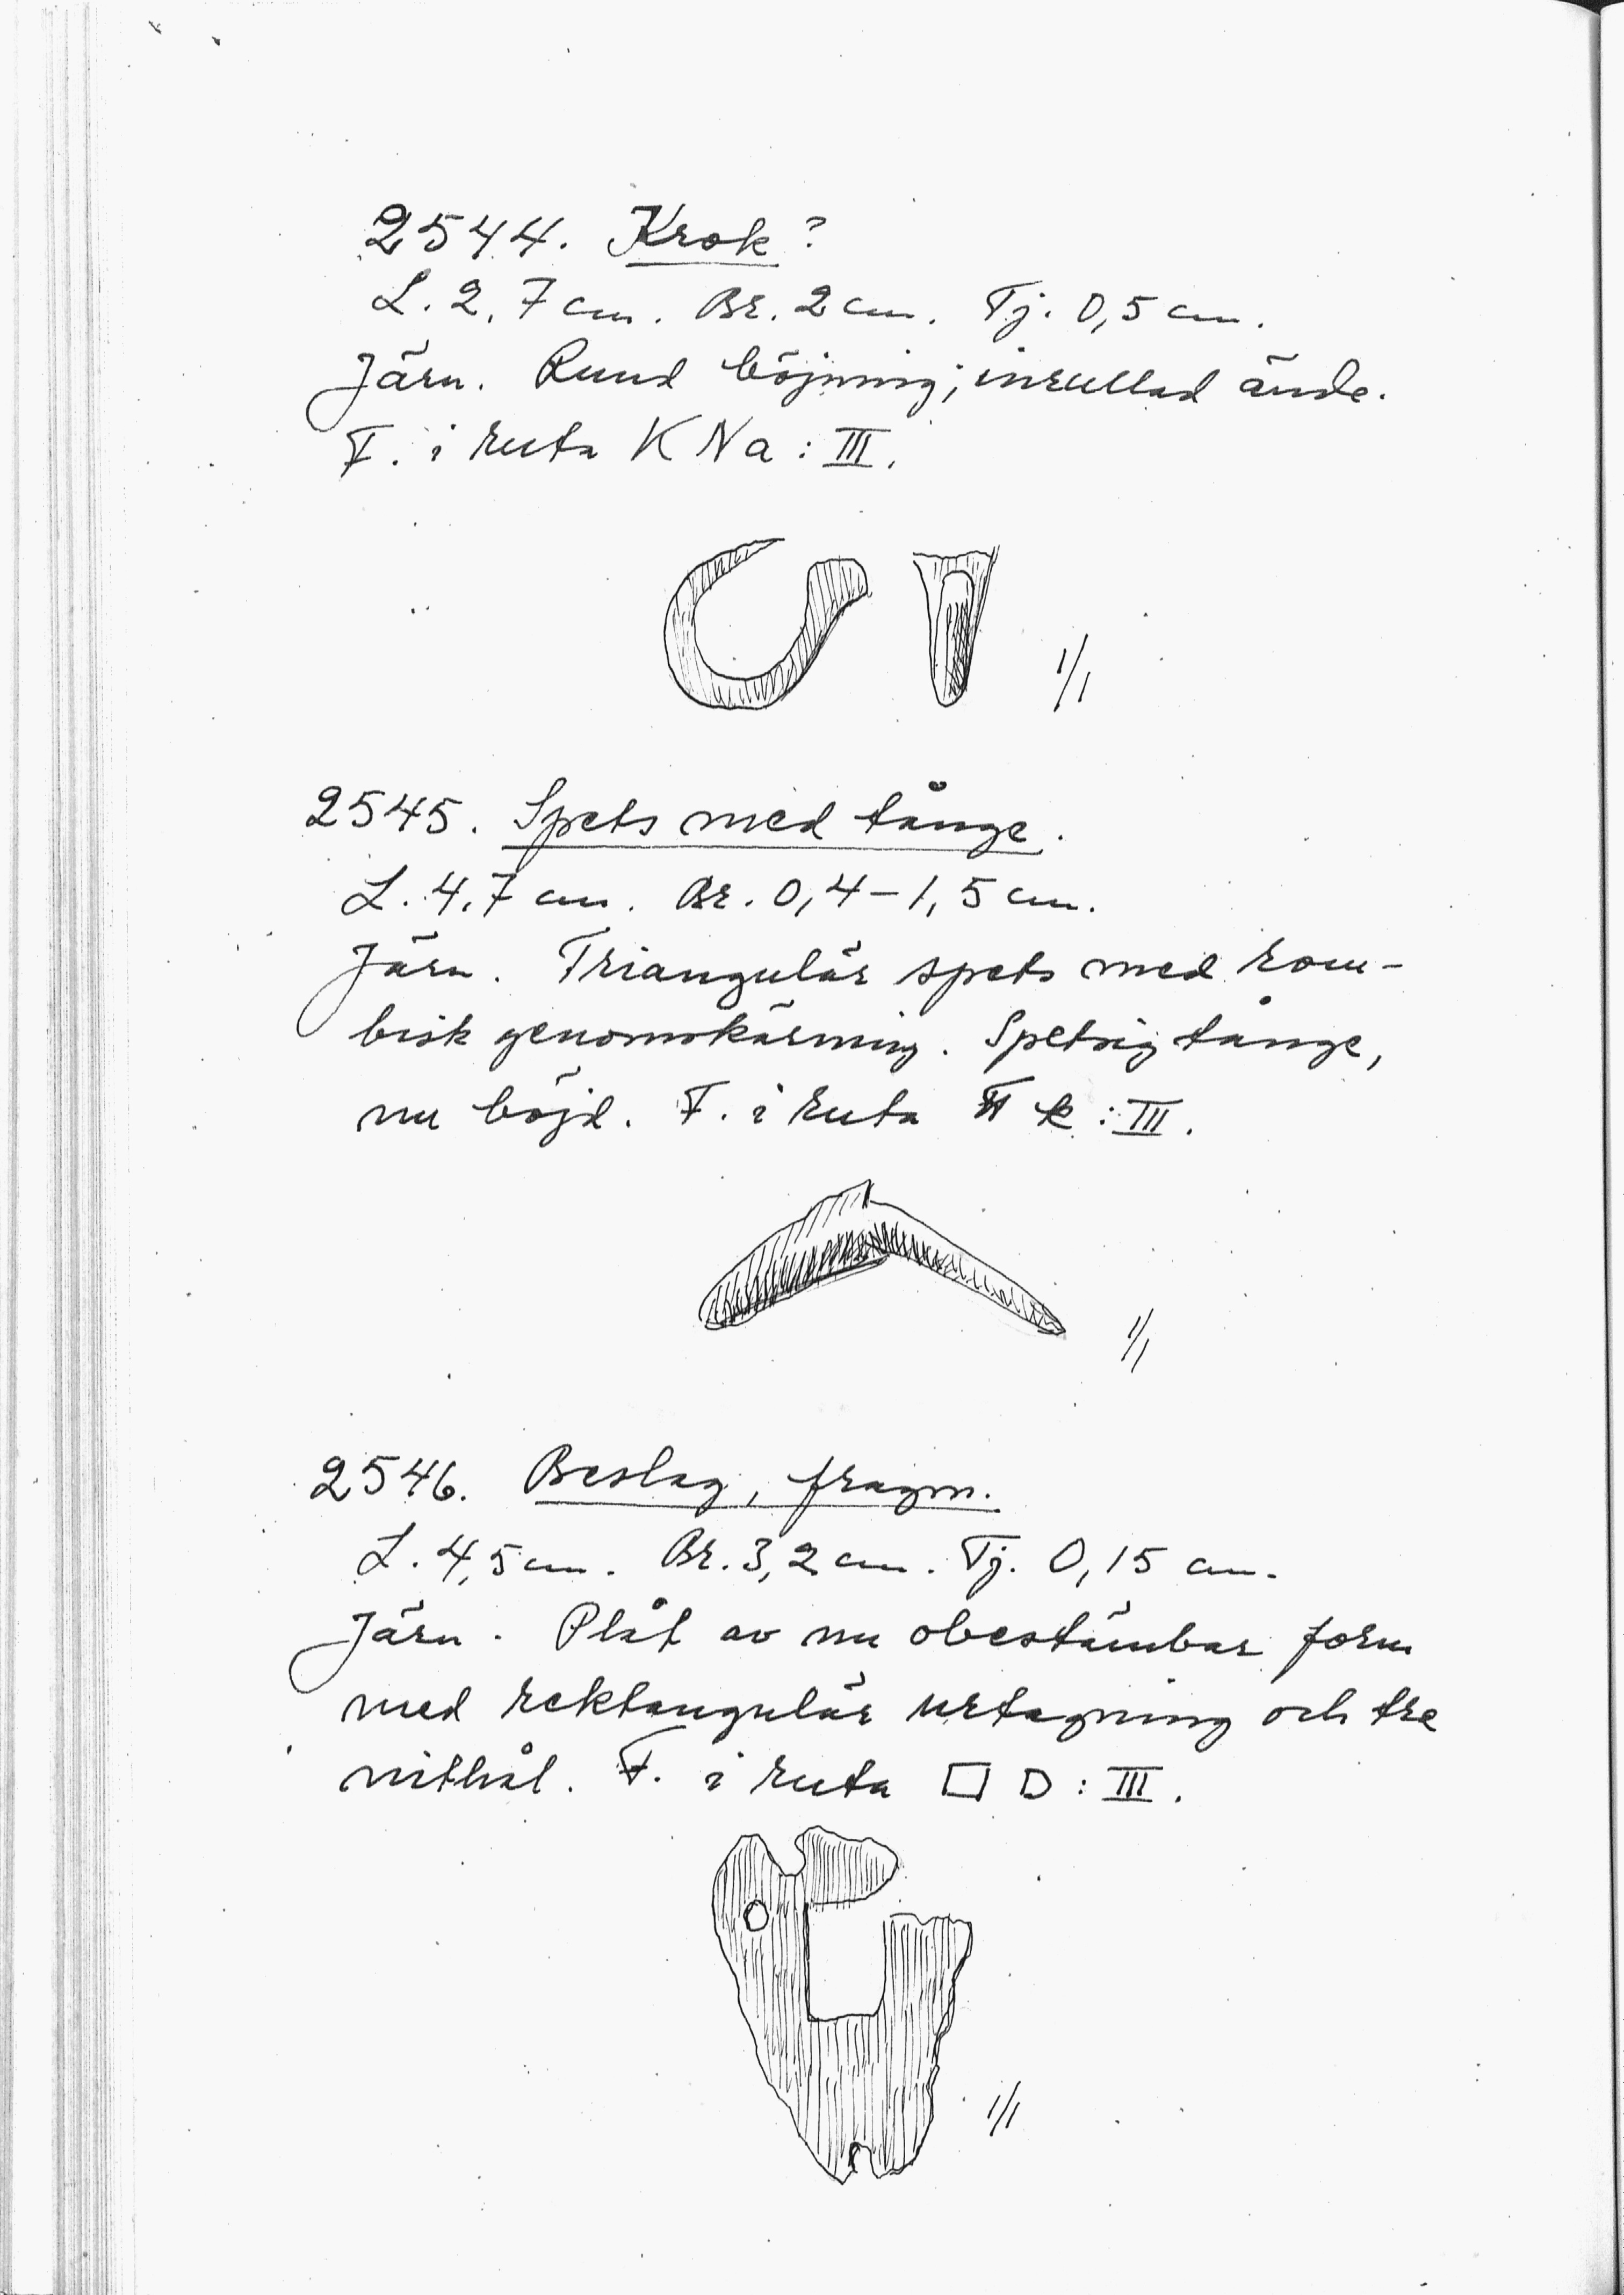 2544. Krok?
L. 2,7 cm. Br. 2 cm. Tj. 0,5 cm.
Järn. Rund böjning; inrullad ände.
F. i ruta K Na : III.
1/1
2545. Spets med tånge.
L. 4,7 cm. Br. 0,4-1,5 cm.
Järn. Triangulär spets med rom-
bisk genomskärning. Spetsig tånge,
nu böjd. F. i ruta k : III.
1/1
2546. Beslag, fragm.
L. 4,5 cm. Br. 3,2 cm. Tj. 0,15 cm.
Järn. Plåt av nu obestämbar form
med rektangulär urtagning och tre
nithål. F. i ruta □ D : III.
1/1